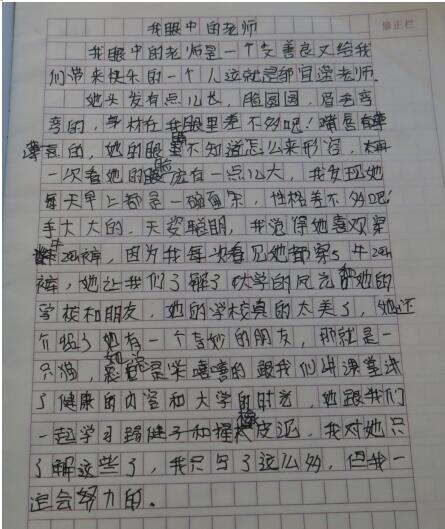 我眼中的老师
修正栏
我眼中的老师是一个又善良又给我
们带来快乐的一个人这就是郭滢老师.
她头发有点儿长，脸圆圆，眉毛弯
弯的，身材在我眼里差不多吧！嘴唇有
薄薄的，她的眼 不知道怎么来形容，
一次看她的脸应有一点儿大，我发现她
每天早上都是一碗面条，性格差不多吧
手大大的，天姿聪明，我觉得她喜欢穿
牛仔裤，因为我每次看见她都穿 牛仔
裤，她让我们了解了大学的风光和她的
学校和朋友，她的学校真的太美了，她还
介绍了她有一个奇妙的朋友，那就是一
只猫，她总是笑嘻嘻的跟我们讲课堂讲
了健康的内容和大学的时光，她跟我们
一起学习踢毽子和 皮泥，我对她只
了解这些了，我只写了这么多，但我一
定会努力的.